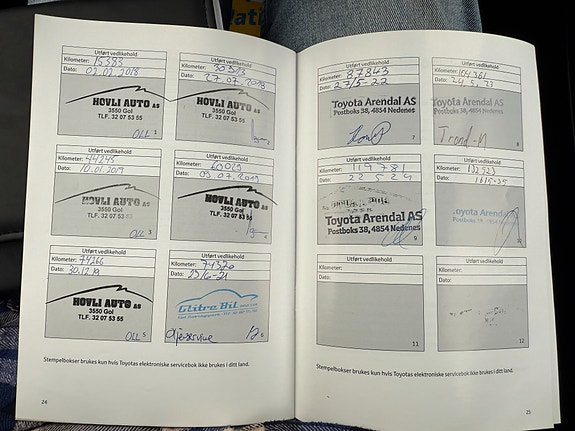 Utført vedlikehold
Kilometer: 15383
Dato: 02.02.2018
HOVLI AUTO AS
3550 Gol
TLF. 32 07 53 55
1
Utført vedlikehold
Kilometer:
Dato: 27.07.2018
HOVLI AUTO AS
3550 Gol
TLF. 32 07 53 55
2
Utført vedlikehold
Kilometer: 44245
Dato: 10.01.2019
HOVLI AUTO AS
3550 Gol
TLF. 32 07 53 55
3
Utført vedlikehold
Kilometer: 60023
Dato: 03.07.2019
HOVLI AUTO AS
3550 Gol
TLF. 32 07 53 55
4
Utført vedlikehold
Kilometer: 74266
Dato: 30.12.19
HOVLI AUTO AS
3550 Gol
TLF. 32 07 53 55
5
Utført vedlikehold
Kilometer: 74320
Dato: 23/6-21
Glitre Bil
6
Stempelbokser brukes kun hvis Toyotas elektroniske servicebok ikke brukes i ditt land.
24
Utført vedlikehold
Kilometer: 87843
Dato: 27/5-22
Toyota Arendal AS
Postboks 38, 4854 Nedenes
7
Utført vedlikehold
Kilometer: 104361
Dato: 24.5.23
Toyota Arendal AS
Postboks 38, 4854 Nedenes
Trond-M
8
Utført vedlikehold
Kilometer: 119781
Dato: 22.5.24
Toyota Arendal AS
Postboks 38, 4854 Nedenes
9
Utført vedlikehold
Kilometer: 132523
Dato:
oyota Arendal AS
Postboks 38, 4854 Nedenes
10
Utført vedlikehold
Kilometer:
Dato:
11
Utført vedlikehold
Kilometer:
Dato:
12
Stempelbokser brukes kun hvis Toyotas elektroniske servicebok ikke brukes i ditt land.
25